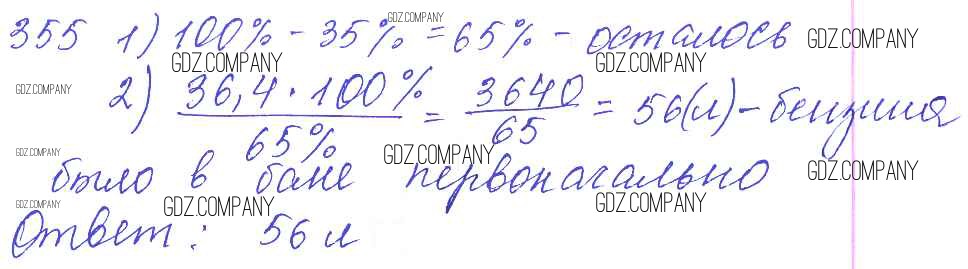 GDZ.COMPANY
355 1) 100% - 35% = 65% - осталось GDZ.COMPANY
GDZ.COMPANY GDZ.COMPANY
GDZ.COMPANY 2) 36,4 · 100% / 65% = 3640 / 65 = 56(л) - бензина
GDZ.COMPANY GDZ.COMPANY
было в баке первоначально GDZ.COMPANY
GDZ.COMPANY GDZ.COMPANY GDZ.COMPANY
Ответ: 56 л